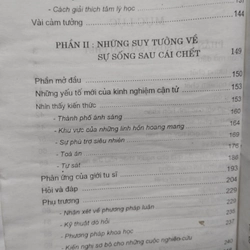 - Cách giải thích tâm lý học
Vài cảm tưởng 144
PHẦN II : NHỮNG SUY TƯỞNG VỀ
SỰ SỐNG SAU CÁI CHẾT 149
Phần mở đầu 150
Những yếu tố mới của kinh nghiệm cận tử 155
Nhìn thấy kiến thức 160
- Thành phố ánh sáng 164
- Khu vực của những linh hồn hoang mang 166
- Sự phù trợ siêu nhiên
- Toà án
- Tự sát 187
Phản ứng của giới tu sĩ 193
Hỏi và đáp 204
Phụ trương 226
- Nhận xét về phương pháp luận
- Kỹ thuật dò hỏi
- Phương pháp khoa học
- Kiến nghị sơ bộ cho những cuộc nghiên cứu